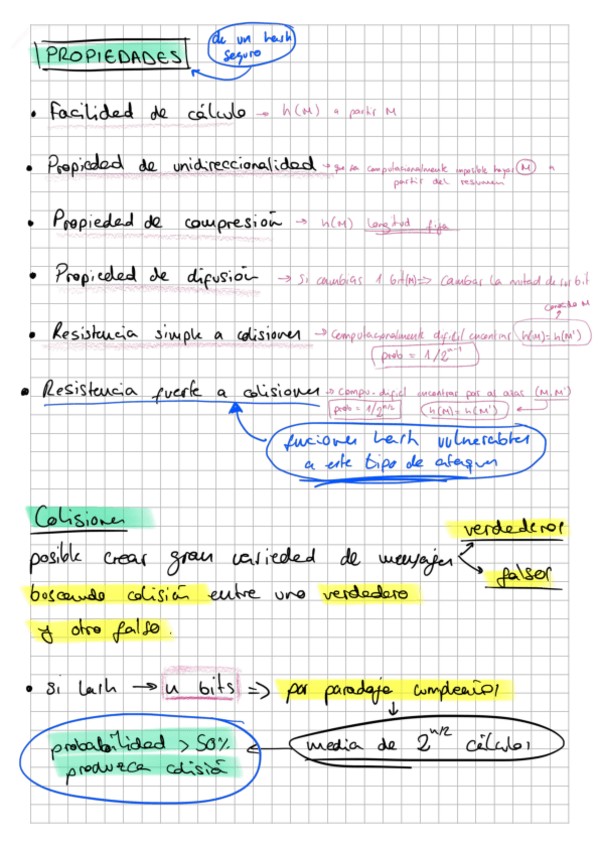 PROPIEDADES
de un hash
seguro
• Facilidad de cálculo → h(M) a partir M
• Propiedad de unidireccionalidad → que sea computacionalmente imposible hayar M a
partir del resumen
• Propiedad de compresión → h(M) longitud fija
• Propiedad de difusión → Si cambias 1 bit(M) => cambiar la mitad de sus bit
conocido M
• Resistencia simple a colisiones → computacionalmente difícil encontrar h(M)=h(M')
prob = 1/2^(n-1)
• Resistencia fuerte a colisiones → compu. difícil encontrar par al azar (M, M')
prob = 1/2^(n/2) h(M)=h(M')
funciones hash vulnerables
a este tipo de ataques
Colisiones
verdaderos
posible crear gran variedad de mensajes
falsos
buscando colisión entre uno verdadero
y otro falso.
• si hash → n bits => por paradoja cumpleaños
probabilidad > 50% ← media de 2^(n/2) cálculos
produzca colisión